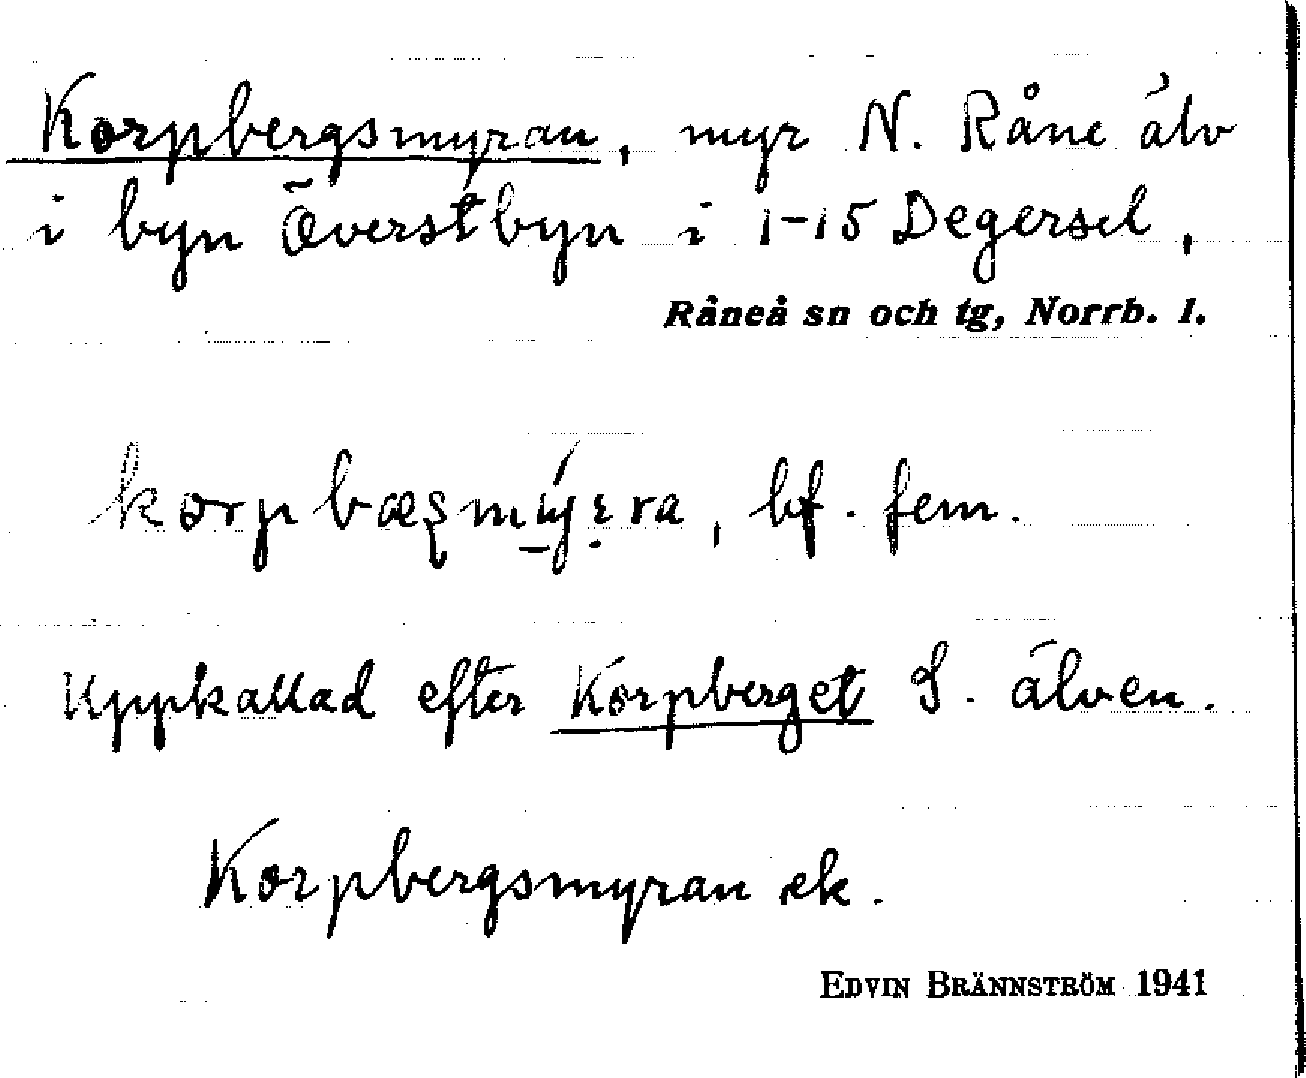 Korpbergsmyran, myr N. Råne älv
i byn Överstbyn i 1-15 Degersel,
Råneå sn och tg, Norrb. l.
bf. fem.
Uppkallad efter Korpberget S. älven.
Korpbergsmyran ek.
EDVIN BRÄNNSTRÖM 1941